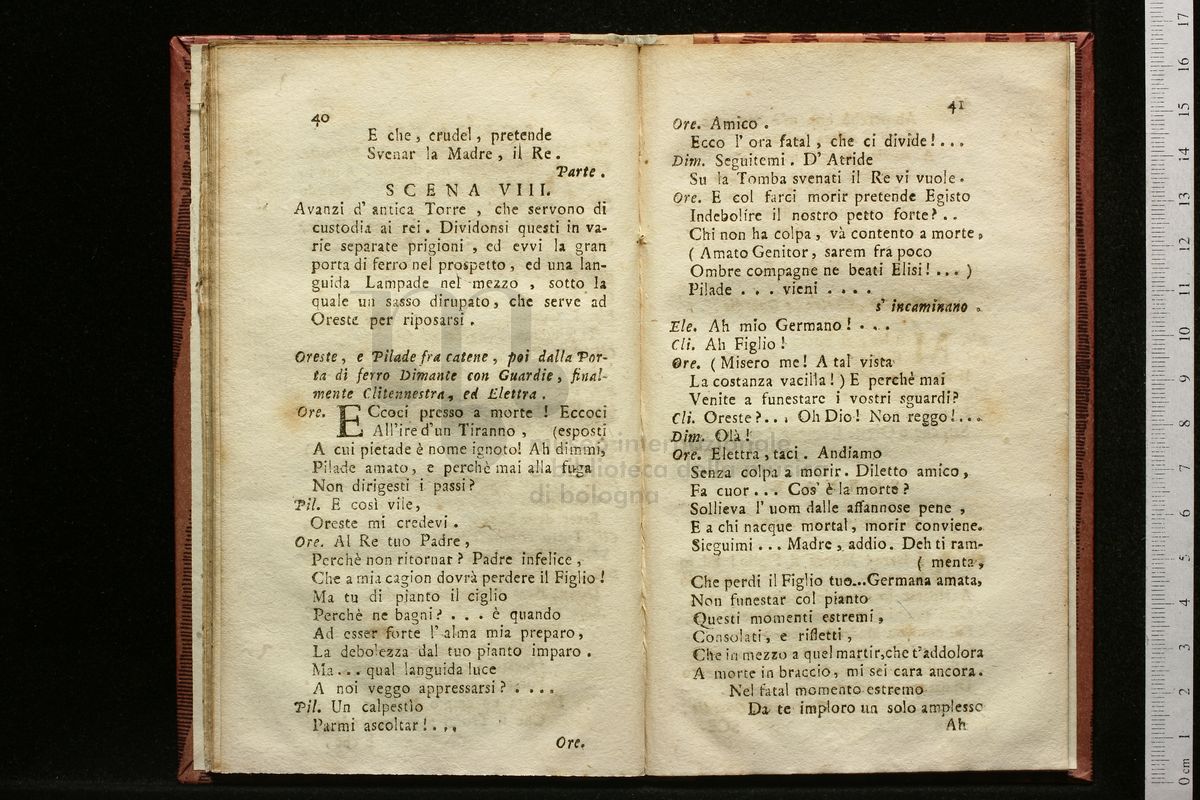 40
E che, crudel, pretende
Svenar la Madre, il Re.
Parte.
SCENA VIII.
Avanzi d' antica Torre , che servono di
custodia ai rei. Dividonsi questi in va-
rie separate prigioni , ed evvi la gran
porta di ferro nel prospetto, ed una lan-
guida Lampade nel mezzo , sotto la
quale un sasso dirupato, che serve ad
Oreste per riposarsi .
Oreste, e Pilade fra catene, poi dalla Por-
ta di ferro Dimante con Guardie, final-
mente Clitennestra, ed Elettra.
Ore. ECcoci presso a morte ! Eccoci
All'ire d'un Tiranno , (esposti
A cui pietade è nome ignoto! Ah dimmi,
Pilade amato, e perchè mai alla fuga
Non dirigesti i passi?
Pil. E così vile,
Oreste mi credevi .
Ore. Al Re tuo Padre,
Perchè non ritornar? Padre infelice,
Che a mia cagion dovrà perdere il Figlio!
Ma tu di pianto il ciglio
Perchè ne bagni? . . . è quando
Ad esser forte l'alma mia preparo,
La debolezza dal tuo pianto imparo .
Ma... qual languida luce
A noi veggo appressarsi? . . . .
Pil. Un calpestìo
Parmi ascoltar!...
Ore.
41
Ore. Amico .
Ecco l' ora fatal, che ci divide!...
Dim. Seguitemi. D' Atride
Su la Tomba svenati il Re vi vuole.
Ore. E col farci morir pretende Egisto
Indebolire il nostro petto forte? . .
Chi non ha colpa, và contento a morte,
( Amato Genitor, sarem fra poco
Ombre compagne ne beati Elisi! ... )
Pilade . . . vieni . . . .
s' incaminano .
Ele. Ah mio Germano! . . .
Cli. Ah Figlio!
Ore. (Misero me! A tal vista
La costanza vacilla!) E perchè mai
Venite a funestare i vostri sguardi?
Cli. Oreste?... Oh Dio! Non reggo!...
Dim. Olà!
Ore. Elettra, taci. Andiamo
Senza colpa a morir. Diletto amico,
Fa cuor... Cos' è la morte?
Sollieva l' uom dalle affannose pene ,
E a chi nacque mortal, morir conviene.
Sieguimi... Madre, addio. Deh ti ram-
( menta,
Che perdi il Figlio tuo...Germana amata,
Non funestar col pianto
Questi momenti estremi,
Consolati, e rifletti,
Che in mezzo a quel martir,che t'addolora
A morte in braccio, mi sei cara ancora.
Nel fatal momento estremo
Da te imploro un solo amplesso
Ah
museo internazionale
biblioteca della musica
di bologna
0 cm 1 2 3 4 5 6 7 8 9 10 11 12 13 14 15 16 17